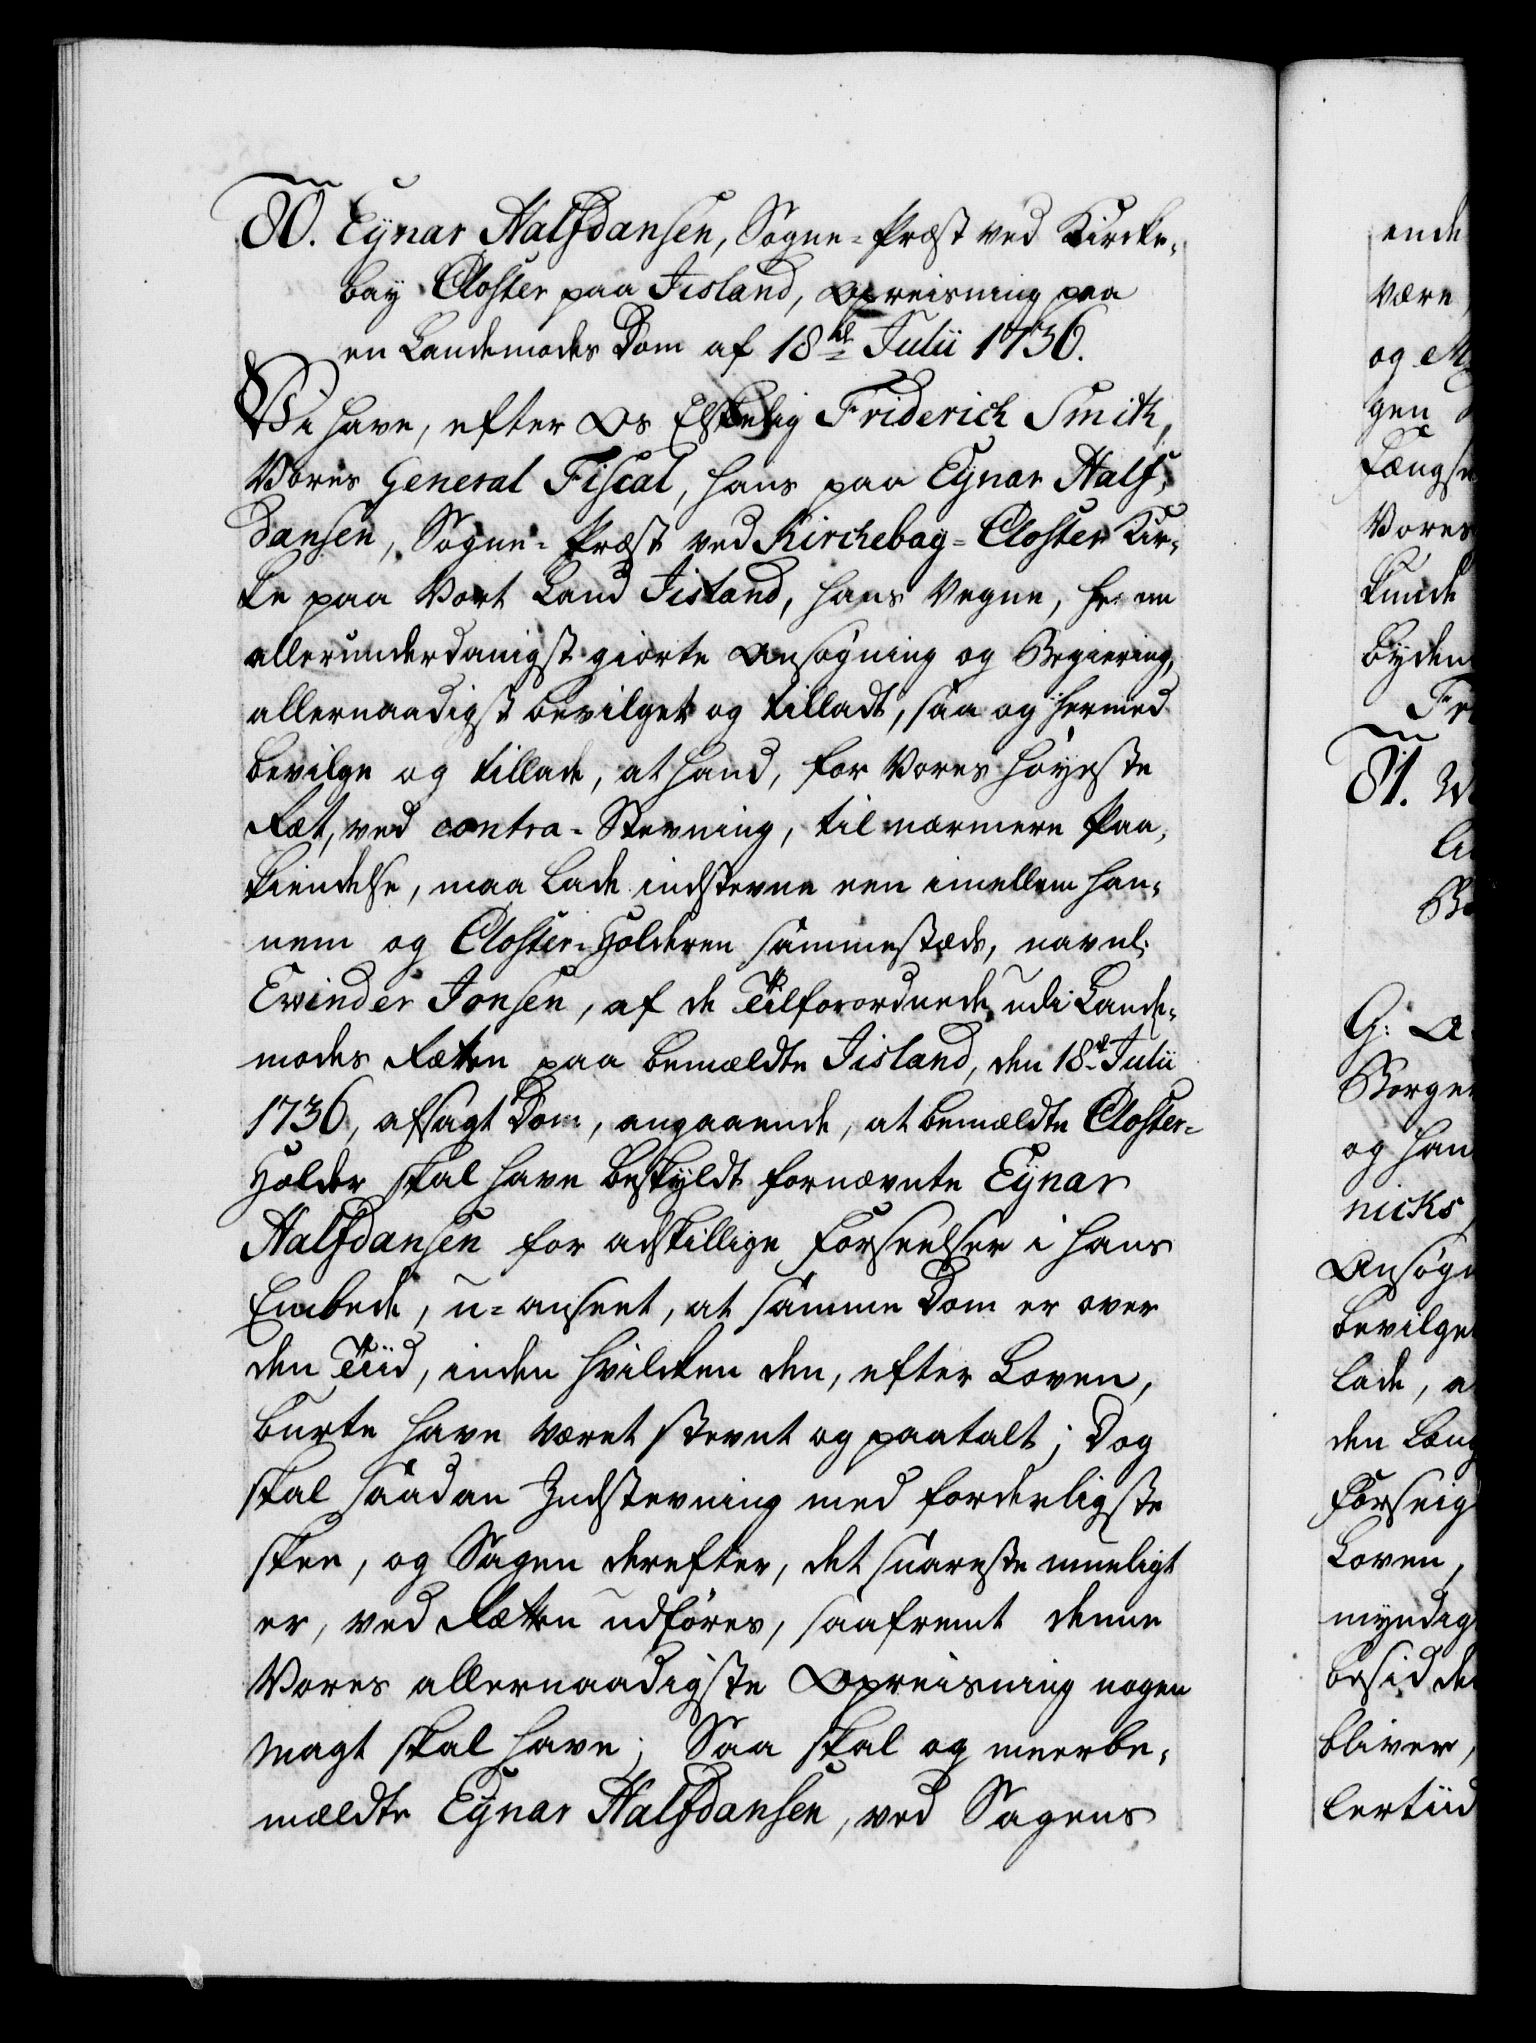 80. Eÿnar Halfdansen, Sogne-Præst ved Kircke-
bay Closter paa Jisland, opreisning paa
en Landemodes Dom af 18de Julii 1736.
Vi have, efter Os Elskelig Friderich Smith,
Vores General Fiscal, hans paa Eÿnar Half-
dansen, Sogne-Præst ved Kirchebaÿ-Closter Kir-
ke paa Vort Land Jisland, hans Vegne, herom
allerunderdanigst giorte Ansøgning og Begiering,
allernaadigst bevilget og tilladt, saa og hermed
bevilge og tillade, at hand, for Vores Høyeste
Ræt, ved contra-Stevning, til nærmere Paa-
kiendelse, maa lade indstevne een imellem han-
nem og Closter-Holderen sammestæds, navnl:
Ewinder Jonsen, af de Tilforordnede udi Lande-
modes Rætten paa bemældte Jisland, den 18de Julii
1736, afsagt Dom, angaaende, at bemældte Closter-
Holder skal have beskyldt fornævnte Eÿnar
Halfdansen for adskillige Forseelser i hans
Embede, u-anseet, at samme Dom er over
den Tiid, inden hvilcken den, efter Loven,
burte have været stevnt og paatalt; Dog
skal saadan Indstevning med forderligste
skee, og Sagen derefter, det snareste mueligt
er, ved Rætten udføres, saafremt denne
Vores allernaadigste Opreisning nogen
Magt skal have; Saa skal og meerbe-
mældte Eÿnar Halfdansen, ved Sagens
ende
være
og
gen
Fængse
Vores
kunde
byden
81.
G:
Borge
og han
nicks
Ansøgn
bevilge
lade, a
den
Forseig
Loven,
myndig
besidde
bliver,
lertiid